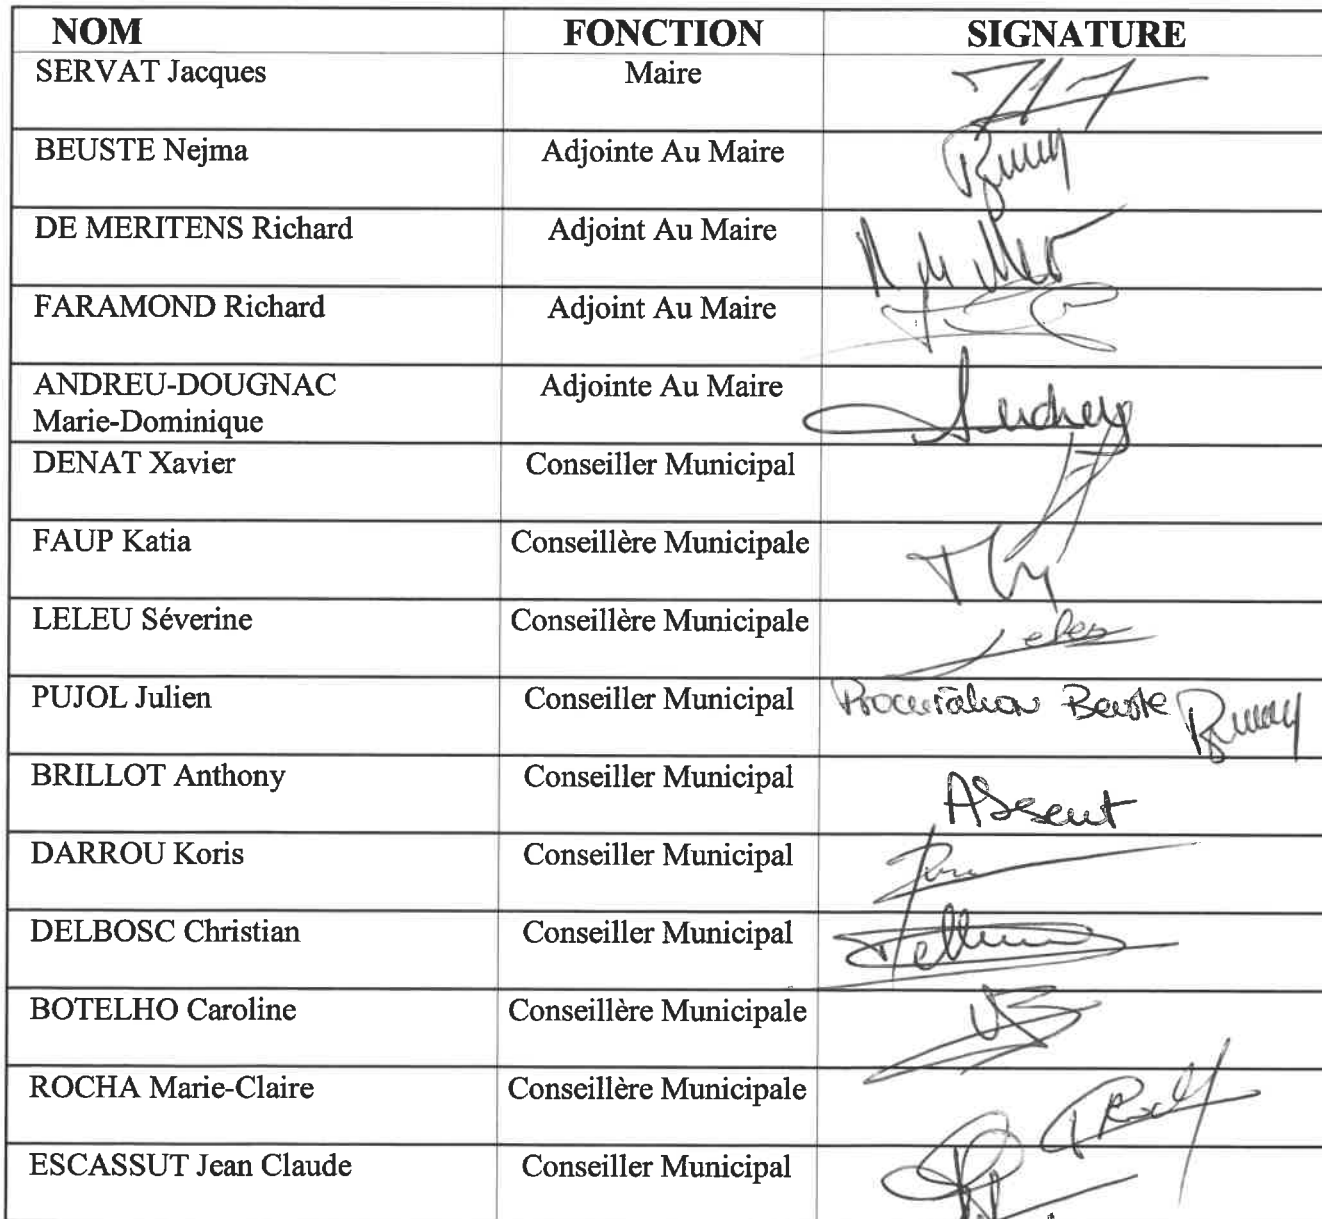 NOM FONCTION SIGNATURE
SERVAT Jacques Maire
BEUSTE Nejma Adjointe Au Maire
DE MERITENS Richard Adjoint Au Maire
FARAMOND Richard Adjoint Au Maire
ANDREU-DOUGNAC Adjointe Au Maire
Marie-Dominique
DENAT Xavier Conseiller Municipal
FAUP Katia Conseillère Municipale
LELEU Séverine Conseillère Municipale
PUJOL Julien Conseiller Municipal Procuration Beuste
BRILLOT Anthony Conseiller Municipal Absent
DARROU Koris Conseiller Municipal
DELBOSC Christian Conseiller Municipal
BOTELHO Caroline Conseillère Municipale
ROCHA Marie-Claire Conseillère Municipale
ESCASSUT Jean Claude Conseiller Municipal